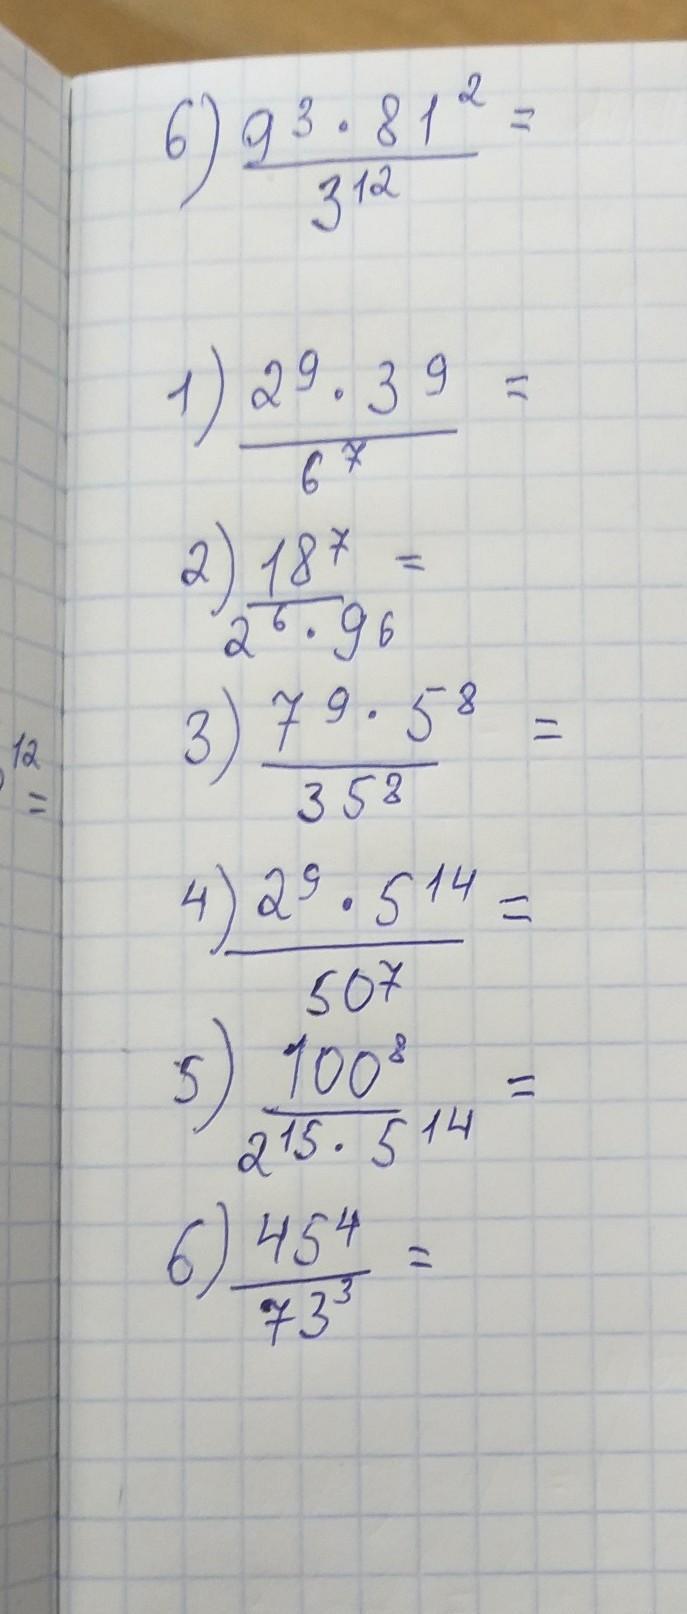 6) 9³ · 81² =
3¹²
1) 2⁹ · 3⁹ =
6⁷
2) 18⁷ =
2⁶ · 96
3) 7⁹ · 5⁸ =
35⁸
12
=
4) 2⁹ · 5¹⁴ =
50⁷
5) 100⁸ =
2¹⁵ · 5¹⁴
6) 45⁴ =
73³